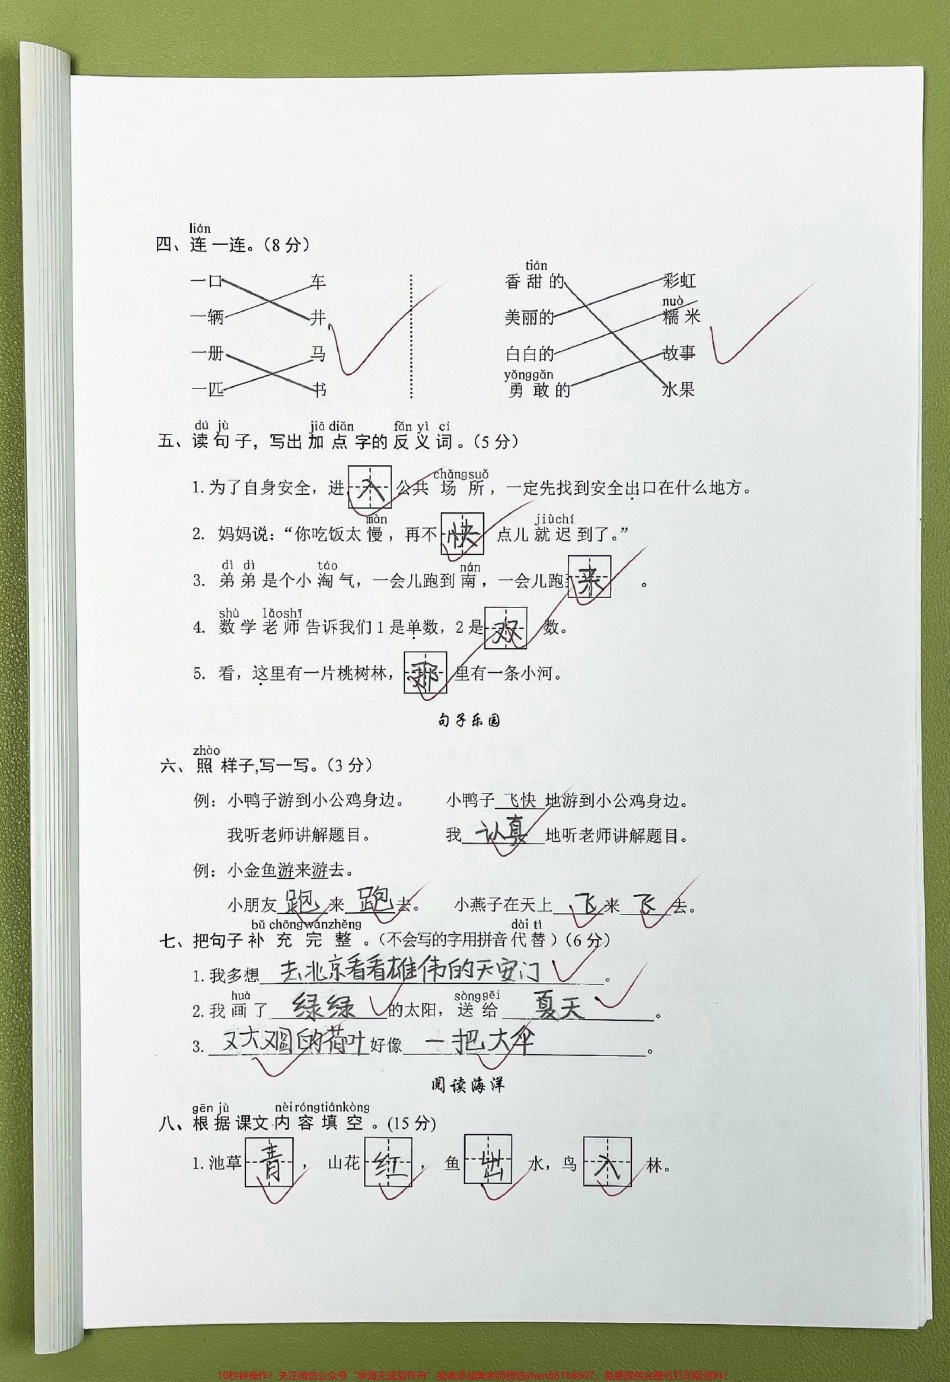 lián
四、连一连。（8 分）
一口 车 香甜的 tián 彩虹
一辆 井 美丽的 糯米 nuò
一册 马 白白的 故事
一匹 书 勇敢的 yǒnggǎn 水果
dú jù jiā diǎn fǎn yì cí
五、读句子，写出加点字的反义词。（5 分）
chǎngsuǒ
1.为了自身安全，进入公共场所，一定先找到安全出口在什么地方。
màn jiùchí
2. 妈妈说：“你吃饭太慢，再不快点儿就迟到了。”
dì dì táo nán
3. 弟弟是个小淘气，一会儿跑到南，一会儿跑来。
shù lǎoshī
4. 数学老师告诉我们 1 是单数，2 是双数。
5. 看，这里有一片桃树林，那里有一条小河。
句子乐园
zhào
六、照样子,写一写。（3 分）
例：小鸭子游到小公鸡身边。 小鸭子 飞快 地游到小公鸡身边。
我听老师讲解题目。 我 认真 地听老师讲解题目。
例：小金鱼游来游去。
小朋友 跑 来 跑 去。 小燕子在天上 飞 来 飞 去。
bǔ chōngwánzhěng dài tì
七、把句子补充完整。（不会写的字用拼音代替）（6 分）
1.我多想 去北京看看雄伟的天安门 。
huà sònggěi
2.我画了 绿绿 的太阳，送给 夏天 。
3. 又大又圆的荷叶 好像 一把大伞 。
阅读海洋
gēn jù nèiróngtiánkòng
八、根据课文内容填空。(15 分)
1.池草青， 山花红， 鱼出水，鸟入林。